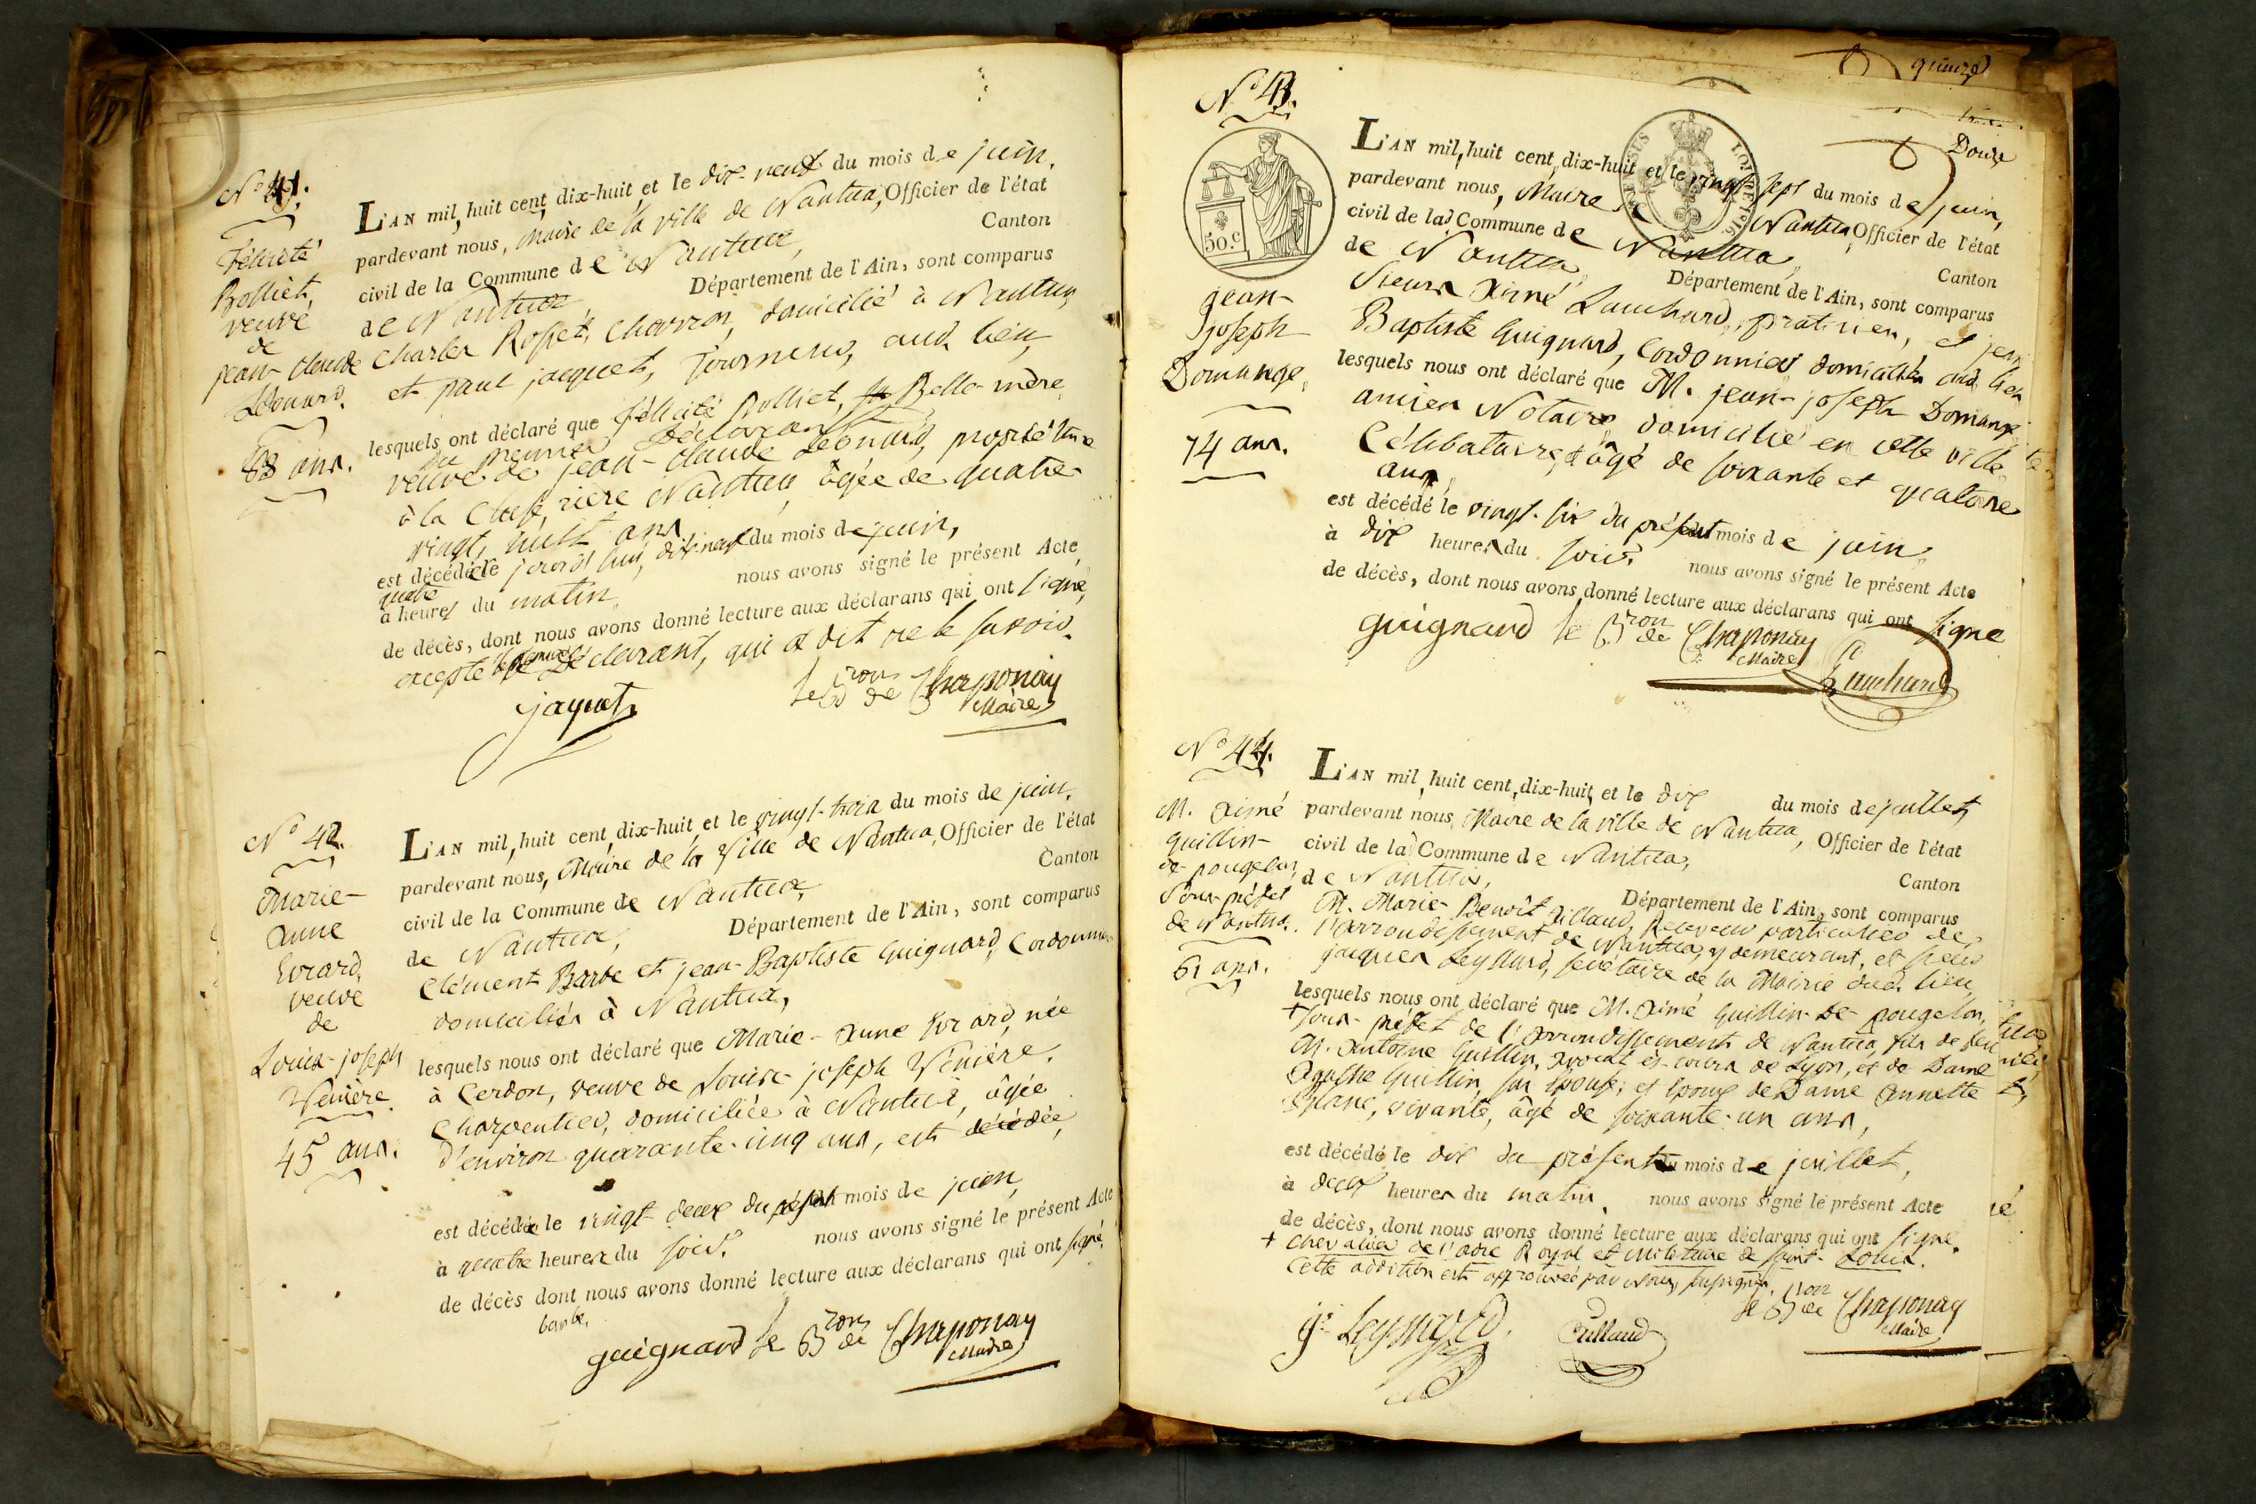 N.º 41.
Félicité
Rolliet,
veuve
de
jean-claude
Léonard.
88 ans.
L'AN mil huit cent dix-huit et le dix-neuf du mois de juin,
pardevant nous, Maire de la ville de Nantua, Officier de l'état
civil de la Commune de Nantua,
Canton
de Nantua, Département de l'Ain, sont comparus
Charles Rosset, Charron, domicilié à Nantua,
et paul jacquet, Tourneur, aud. lieu,
lesquels ont déclaré que félicité Rolliet, Belle-mère
du premier Déclarant
veuve de jean-claude Léonard, propriétaire
à la Cluse, rière Nantua, âgée de quatre
vingt, huit ans
est décédée le jourd'hui, dix-neuf du mois de juin,
à quatre heures du matin, nous avons signé le présent Acte
de décès, dont nous avons donné lecture aux déclarans qui ont signé,
excepté le premier Déclarant, qui a dit ne le savoir.
jaquet
le Bron de Chaponay
Maire
N.º 42.
Marie-
anne
Evrard,
veuve
de
Louis-joseph
Vénière.
45 ans.
L'AN mil huit cent dix-huit et le vingt-trois du mois de juin,
pardevant nous, Maire de la Ville de Nantua, Officier de l'état
civil de la Commune de Nantua,
Canton
de Nantua, Département de l'Ain, sont comparus
Clément Barbe et jean-Baptiste Guignard, Cordonniers
domiciliés à Nantua,
lesquels nous ont déclaré que Marie-anne Evrard, née
à Cerdon, veuve de Louis-joseph Vénière,
Charpentier, domiciliée à Nantua, âgée
d'environ quarante-cinq ans, est décédée,
est décédée le vingt-deux du présent mois de juin,
à quatre heures du soir. nous avons signé le présent Acte
de décès dont nous avons donné lecture aux déclarans qui ont signé.
barbe,
guignard le Bron de Chaponay
Maire
quinze
Douze
N.º 43.
50.c
jean-
joseph
Domange,
74 ans.
L'AN mil huit cent dix-huit et le vingt sept du mois de juin,
pardevant nous, Maire de Nantua, Officier de l'état
civil de la Commune de Nantua
Canton
de Nantua, Département de l'Ain, sont comparus
Sieurs aimé Lauchard, praticien, et jean
Baptiste Guignard, Cordonnier domiciliés aud. lieu
lesquels nous ont déclaré que M. jean-joseph Domange
ancien Notaire domicilié en cette ville,
Célibataire, âgé de soixante et quatorze
ans,
est décédé le vingt-six du présent mois de juin,
à dix heures du soir. nous avons signé le présent Acte
de décès, dont nous avons donné lecture aux déclarans qui ont signé
guignard le Bron de Chaponay
Maire
Lauchard
N.º 44.
M. aimé
guillin-
de pougelon,
Sous-préfet
de Nantua.
61 ans.
L'AN mil huit cent dix-huit et le dix du mois de juillet,
pardevant nous Maire de la ville de Nantua, Officier de l'état
civil de la Commune de Nantua,
Canton
de Nantua, Département de l'Ain, sont comparus
M. Marie-Benoît Jillaud, Receveur particulier de
l'arrondissement de Nantua, y demeurant, et sieur
jacques Leynard, secrétaire de la Mairie dud. lieu
lesquels nous ont déclaré que M. aimé Guillin-De-pougelon,
+ sous-préfet de l'arrondissement de Nantua, fils de feu
M. antoine Guillin, avocat ès-cours de Lyon, et de Dame
Guillin, son épouse; et époux de Dame annette
vivante, âgé de soixante-un ans,
est décédé le dix du présent mois de juillet,
à deux heures du matin, nous avons signé le présent Acte
de décès, dont nous avons donné lecture aux déclarans qui ont signé.
+ chevalier de l'ordre Royal et militaire de saint-Louis.
Cette addition est approuvée par Nous, soussignés.
le Bron de Chaponay
Maire